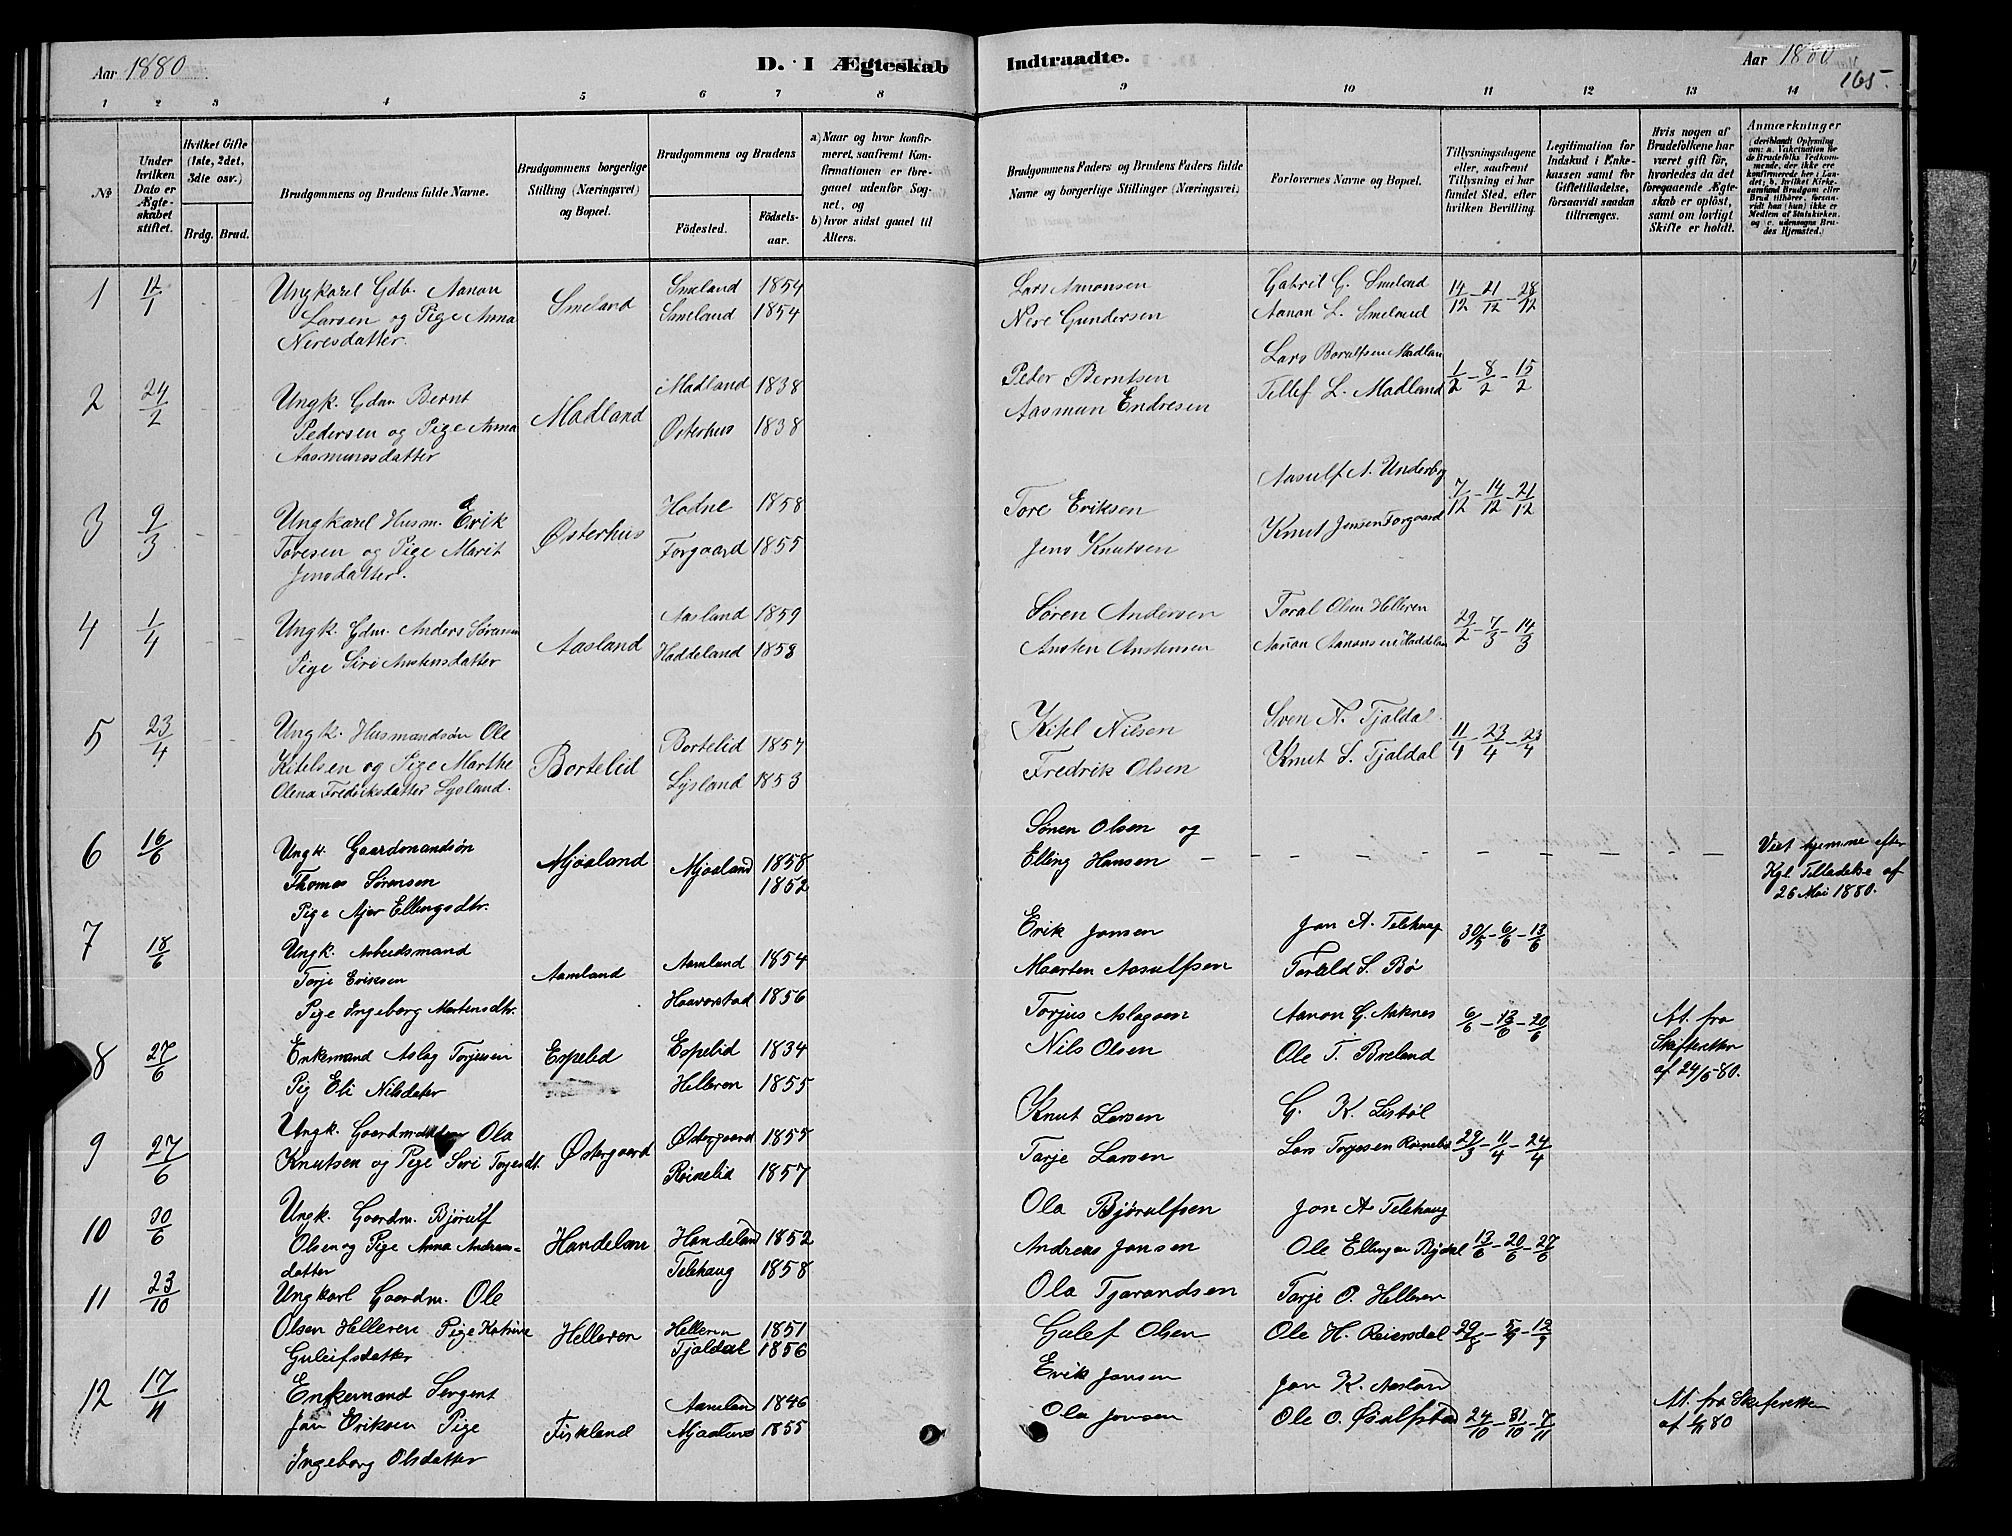 Aar 1880
D. I Ægteskab
Indtraadte.
Aar 1880
165.
1 2 3 4 5 6 7 8 9 10 11 12 13 14
№
Under hvilken Dato er Ægteskabet stiftet.
Hvilket Gifte (1ste, 2det, 3die osv.)
Brdg. Brud.
Brudgommens og Brudens fulde Navne.
Brudgommens borgerlige Stilling (Næringsvei) og Bopæl.
Brudgommens og Brudens
Fødested.
Fødselsaar.
a) Naar og hvor konfirmeret, saafremt Konfirmationen er foregaaet udenfor Sognet, og
b) hvor sidst gaaet til Alters.
Brudgommens Faders og Brudens Faders fulde Navne og borgerlige Stillinger (Næringsvei)
Forlovernes Navne og Bopæl.
Tillysningsdagene eller, saafremt Tillysning ei har fundet Sted, efter hvilken Bevilling.
Legitimation for Indskud i Enkekassen samt for Giftetilladelse, forsaavidt saadan tiltrænges.
Hvis nogen af Brudefolkene har været gift før, hvorledes da det foregaaende Ægteskab er opløst, samt om lovligt Skifte er holdt.
Anmærkninger (deriblandt Oplysning om: a. Vakcination for de Brudefolks Vedkommende, der ikke ere konfirmerede her i Landet; b. hvilket Kirkesamfund Brudgom eller Brud tilhører, forsaavidt han (hun) ikke er Medlem af Statskirken. og c. udensogns Brudes Hjemsted.)
1 12/1 Ungkarel Gdb. Aanon
Larsen og Pige Anna
Neresdatter.
Smeland
Smeland 1854
Smeland 1854
Lars Aanonsen
Nere Gundersen
Gabril G. Smeland
Aanon L. Smeland
14/12 - 21/12 - 28/12
2 24/2 Ungk. Gdm Bernt
Pedersen og Pige Anna
Aasmunsdatter
Madland
Madland 1838
Østerhus 1838
Peder Berntsen
Aasmun Endresen
Lars Borulfsen Madlan
Tellef L. Madland
1/2 - 8/2 - 15/2
3 9/3 Ungkarel Husm. Erik
Toresen og Pige Marit
Jensdatter.
Østerhus
Hodne 1858
Forgaard 1855
Tore Eriksen
Jens Knutsen
Aasulf A. Underby
Knut Jensen Forgaard
7/12 - 14/12 - 21/12
4 1/4 Ungk. Gdm. Anders Sørensen
Pige Siri Anstensdatter
Aasland
Aasland 1859
Haddeland 1858
Søren Andersen
Ansten Anstensen
Toral Olsen Helleren
Aanon Aanonsen Haddelan
29/2 - 7/3 - 14/3
5 23/4 Ungk. Husmandsøn Ole
Kitelsen og Pige Marthe
Olena Fredriksdatter Lysland.
Bortelid
Bortelid 1857
Lysland 1853
Kitel Nilsen
Fredrik Olsen
Sven N. Tjaldal
Knut S. Tjaldal
11/4 - 23/4 - 23/4
6 16/6 Ungk. Gaardmandsøn
Thomas Sørensen
Pige Ajer Ellingsdtr.
Mjaaland
Mjaaland 1858
1852
Søren Olsen og
Elling Hansen
Viet hjemme efter
Kgl. Tilladelse af
26 Mai 1880.
7 18/6 Ungk. Arbeidsmand
Torje Eriksen
Pige Ingeborg Martensdtr.
Aamland
Aamland 1854
Haaverstad 1856
Erik Jonsen
Maarten Aasulfsen
Jon A. Telehaug
Torkild S. Bø
30/5 - 6/6 - 13/6
8 27/6 Enkemand Aslag Torjusen
Pig Eli Nilsdater
Espelid
Espelid 1834
Helleren 1855
Torjus Aslagsen
Nils Olsen
Aanon G. Aaknes
Ole T. Breland
6/6 - 13/6 - 20/6
At. fra
Skifteretten
af 24/5-80.
9 27/6 Ungk. Ola
Knutsen og Pige Siri Torjesdt.
Østergaard
Østergaard 1855
Røinelid 1857
Knut Larsen
Tarje Larsen
G. K. Listøl
Lars Torjesen Røinelid
29/3 - 11/4 - 24/4
10 30/6 Ungk. Gaardm. Bjørulf
Olsen og Pige Anna Andreas-
datter
Handelan
Handeland 1852
Telehaug 1858
Ola Bjørulfsen
Andreas Jonsen
Jon A Telehaug
Ole Ellingsen
13/6 - 20/6 - 27/6
11 23/10 Ungkarl Gaardm. Ole
Olsen Helleren Pige Katrine
Guleifsdatter
Helleren
Helleren 1851
Tjaldal 1856
Ola Tjarandsen
Gulef Olsen
Tarje O. Helleren
Ole H. Reiersdal
29/8 - 5/9 - 12/9
12 17/11 Enkemand Sergent
Jon Eriksen Pige
Ingeborg Olsdatter
Fiskland
Aamlan 1846
Mjaaland 1855
Erik Jonsen
Ola Jonsen
Jon K. Aasland
Ole O. Øiulfstad
24/10 - 31/10 - 7/11
At. fra Skifteretten
80